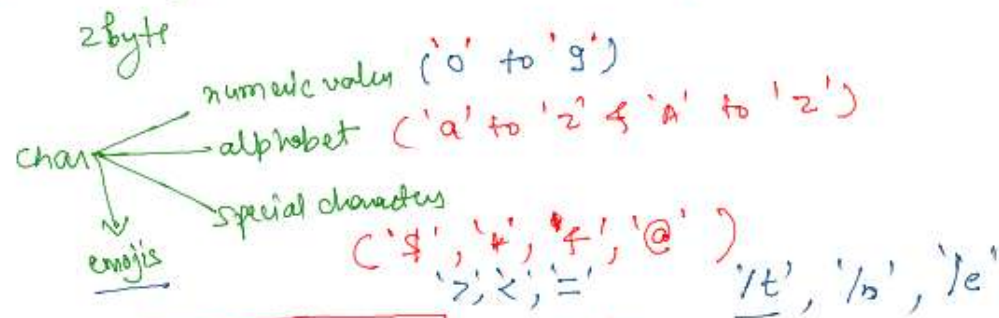 2 byte
numeric value ('0' to '9')
char alphabet ('a' to 'z' & 'A' to 'z')
special characters
emojis ('$', '*', '&', '@')
'>', '<', '=' '/t', '/n', '/e'